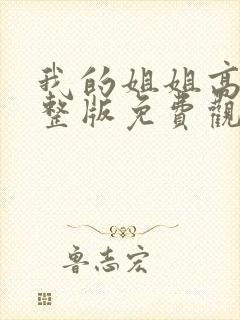 我的姐姐高
整版免費觀
鲁志宏